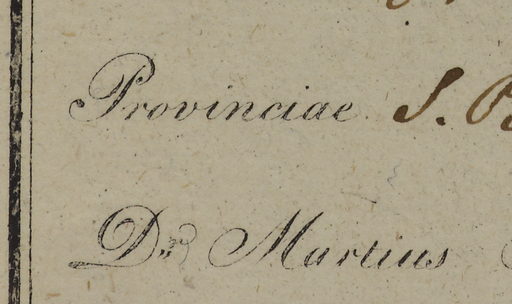 Provinciae S. P
Dr. Martius